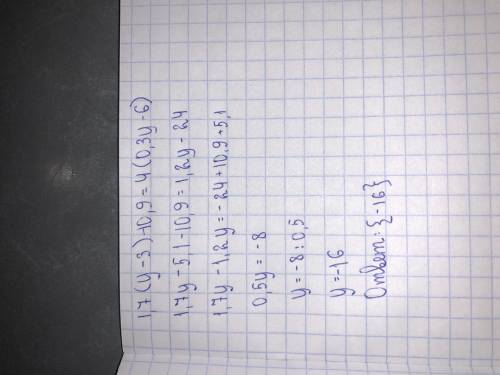 1,7(y-3)-10,9=4(0,3y-6)
1,7y-5,1-10,9=1,2y-24
1,7y-1,2y=-24+10,9+5,1
0,5y=-8
y=-8:0,5
y=-16
Ответ: {-16}